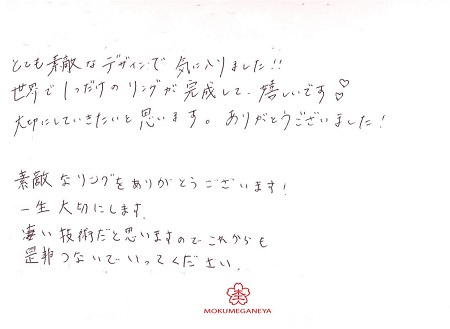 とても素敵なデザインで気に入りました!!
世界で1つだけのリングが完成して、嬉しいです♡♡
大切にしていきたいと思います。ありがとうございました!
素敵なリングをありがとうございます!
一生大切にします。
凄い技術だと思いますのでこれからも
是非つないでいってください。
MOKUMEGANEYA